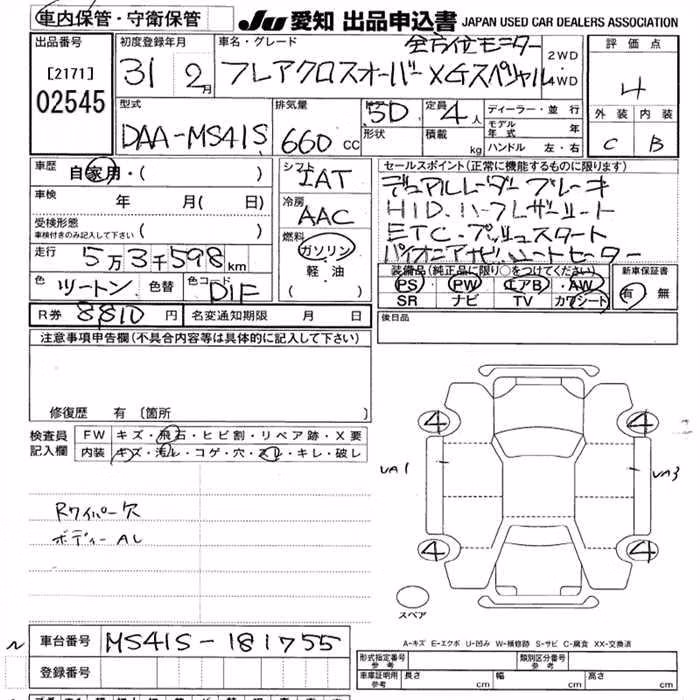 車内保管・守衛保管 JU 愛知 出品申込書 JAPAN USED CAR DEALERS ASSOCIATION
出品番号 初度登録年月 車名・グレード 全方位モニター 評価点
[2171] 31 2月 フレアクロスオーバー XGスペシャル 2WD・4WD 4
02545
型式 排気量 5D 定員 4人 ディーラー・並行 外装 内装
DAA-MS41S 660cc 形状 積載 kg モデル年式 年 C B
ハンドル 左・右
車歴 自家用・( ) シフト IAT セールスポイント(正常に機能するものに限ります)
車検 年 月( 日) 冷房 AAC デュアルレーダーブレーキ
受検形態 ( ) HID.ハーフレザーシート
車検付きのみ記入して下さい
燃料 ETC.プッシュスタート
走行 5万3千598km ガソリン パイオニアナビ.シートヒーター
軽油 装備品(純正品に限り○をつけてください) 新車保証書
色 ツートン 色替 色コード D1F ( ) PS・PW・エアB・AW 有 無
SR ナビ TV カワシート
R券 8810円 名変通知期限 月 日 後日品
注意事項申告欄(不具合内容等は具体的に記入して下さい)
修復歴 有 〔箇所 〕
検査員記入欄 FW キズ・飛石・ヒビ割・リペア跡・X要
内装 キズ・汚レ・コゲ・穴・スレ・キレ・破レ
4 4
UA1 UA3
Rワイパー欠
ボディー AL
4 4
スペア
A-キズ E-エクボ U-凹み W-補修跡 S-サビ C-腐食 XX-交換済
車台番号 MS41S-181755
登録番号
形式指定番号 参考 類別区分番号 参考
車庫証明用 参考 長さ cm 幅 cm 高さ cm